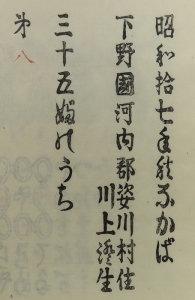 昭和拾七年のなかば
下野國河内郡姿川村住
川上澄生
三十五部のうち
第八